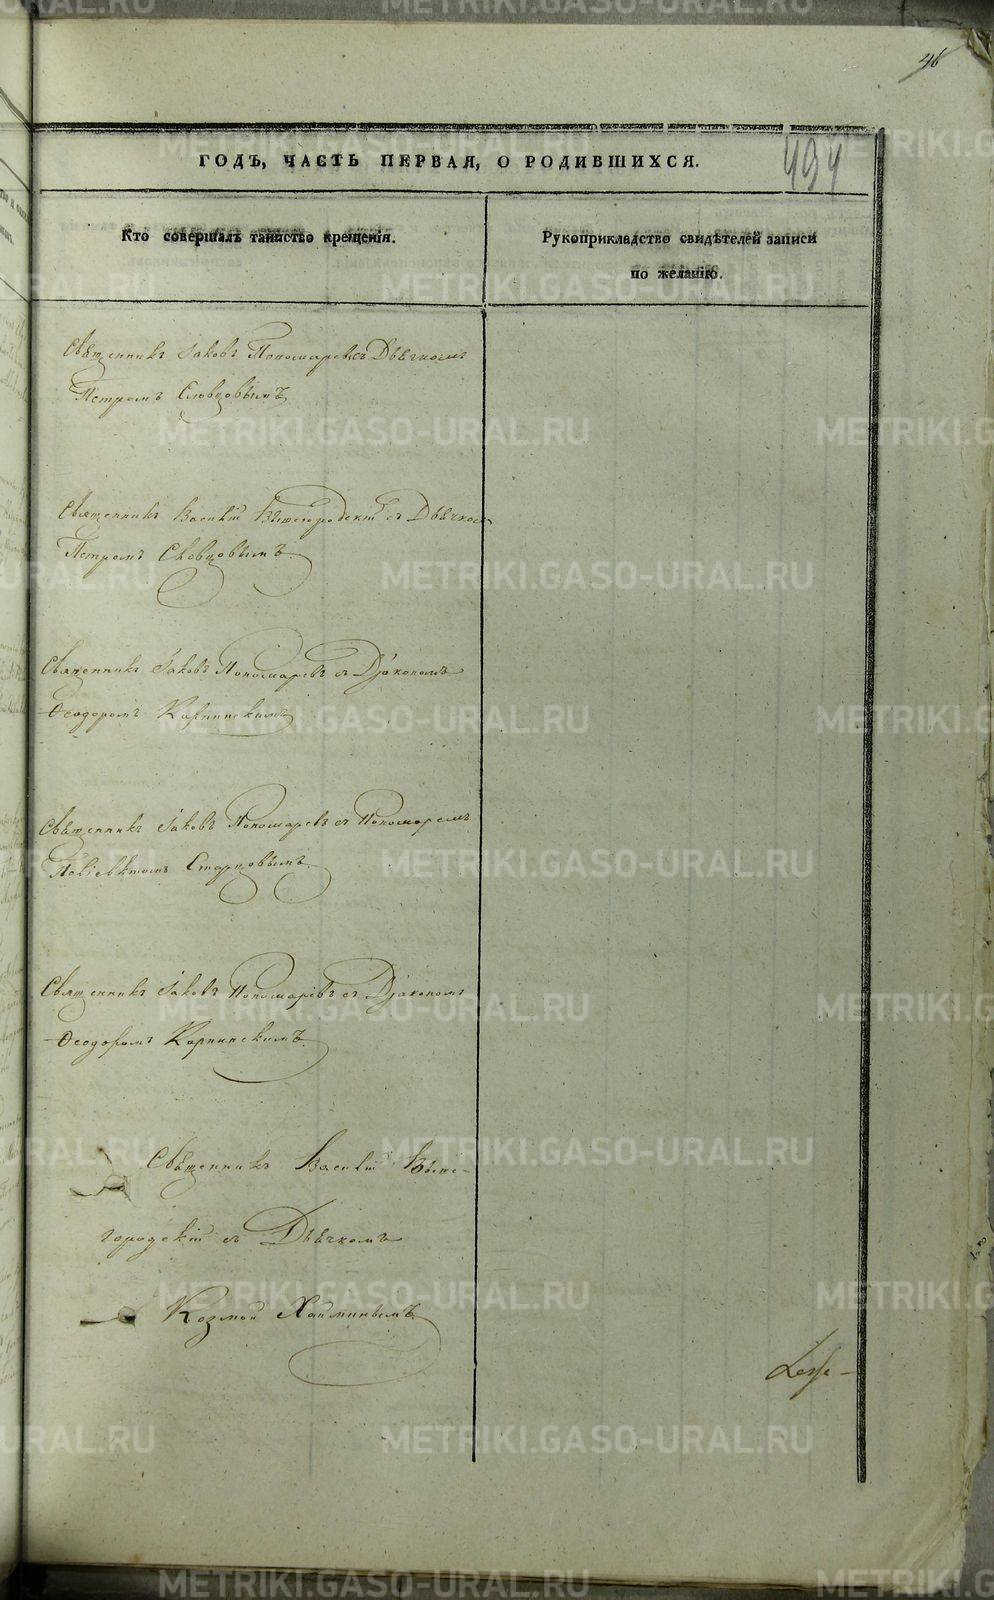 46
ГОДЪ, ЧАСТЬ ПЕРВАЯ, О РОДИВШИХСЯ.
494
Кто совершалъ таинство крещенія.
Рукоприкладство свидѣтелей записи
по желанію.
Священникъ Іаковъ Пономаревъ съ Дьячкомъ
Петромъ Словцовымъ
Священникъ Василій Вышегородскій съ Дьячкомъ
Петромъ Словцовымъ
Священникъ Іаковъ Пономаревъ съ Діакономъ
Ѳеодоромъ Карпинскимъ
Священникъ Іаковъ Пономаревъ съ Пономаремъ
Старцовымъ
Священникъ Іаковъ Пономаревъ съ Діакономъ
Ѳеодоромъ Карпинскимъ
Священникъ Василій Выше-
городскій съ Дьячкомъ
Козмой
METRIKI.GASO-URAL.RU